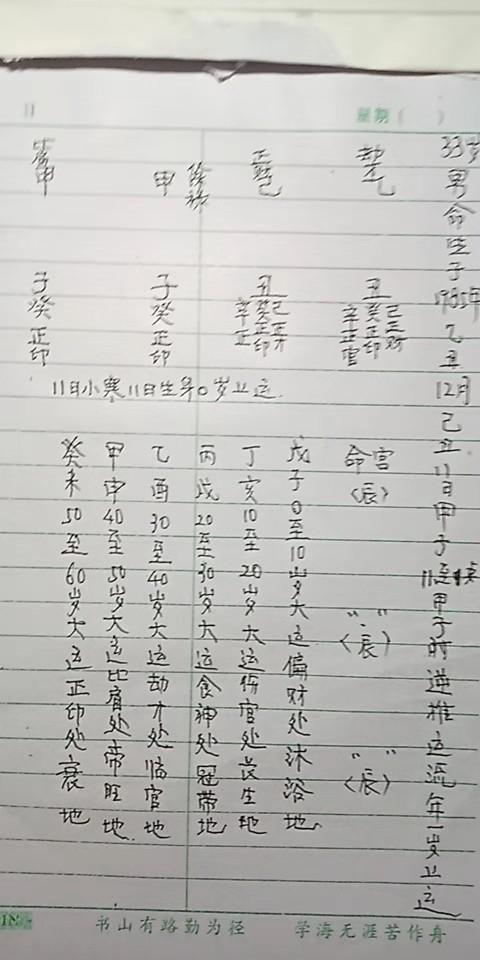 11 星期（ ）
33岁男命生于1985年乙丑12月己丑11日甲子11至1点甲子时逆推运流年一岁上运
劫才乙 丑 己正财 癸正印 辛正官
命宫〈辰〉 "."〈辰〉 " "〈辰〉
正财己 丑 己正才 癸正印 辛正
戊子0至10岁大运偏财处沐浴地
丁亥10至20岁大运伤官处长生地
甲 子 癸 正印
丙戌20至30岁大运食神处冠带地
乙酉30至40岁大运劫才处临官地
甲 子 癸 正印
甲申40至50岁大运比肩处帝旺地
癸未50至60岁大运正印处衰地
11日小寒11日生算0岁上运.
书山有路勤为径 学海无涯苦作舟